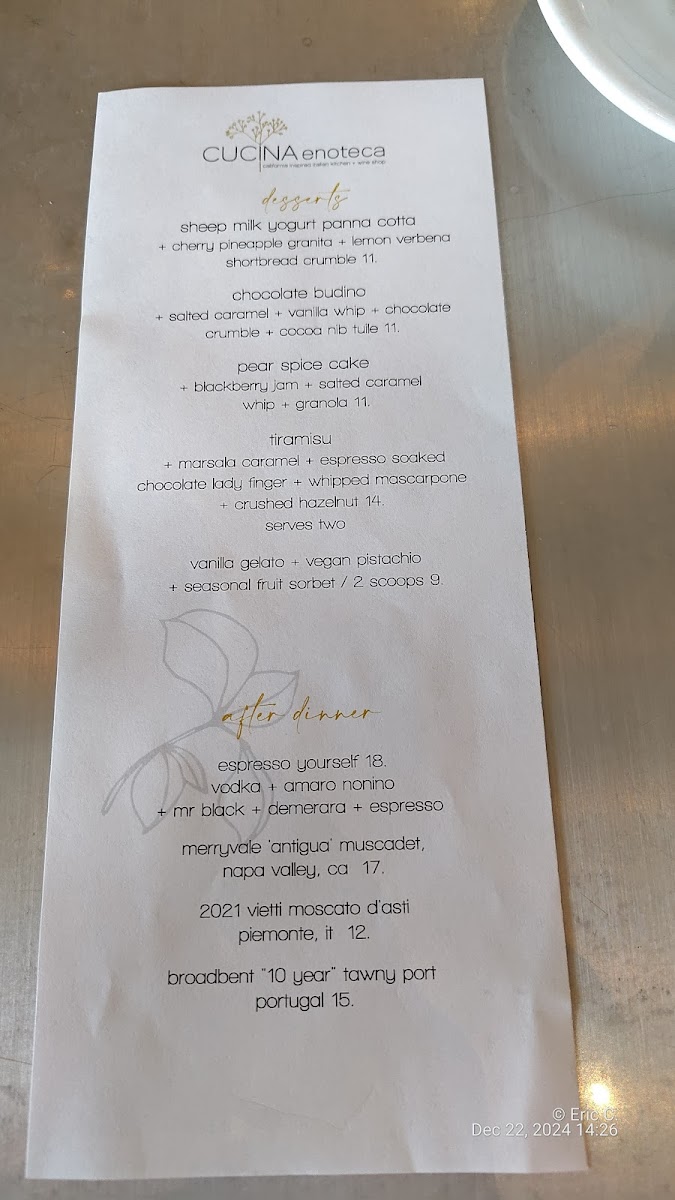 CUCINA enoteca
california inspired italian kitchen + wine shop
desserts
sheep milk yogurt panna cotta
+ cherry pineapple granita + lemon verbena
shortbread crumble 11.
chocolate budino
+ salted caramel + vanilla whip + chocolate
crumble + cocoa nib tulle 11.
pear spice cake
+ blackberry jam + salted caramel
whip + granola 11.
tiramisu
+ marsala caramel + espresso soaked
chocolate lady finger + whipped mascarpone
+ crushed hazelnut 14.
serves two
vanilla gelato + vegan pistachio
+ seasonal fruit sorbet / 2 scoops 9.
after dinner
espresso yourself 18.
vodka + amaro nonino
+ mr black + demerara + espresso
merryvale 'antigua' muscadet,
napa valley, ca 17.
2021 vietti moscato d'asti
piemonte, it 12.
broadbent "10 year" tawny port
portugal 15.
© Eric C.
Dec 22, 2024 14:26